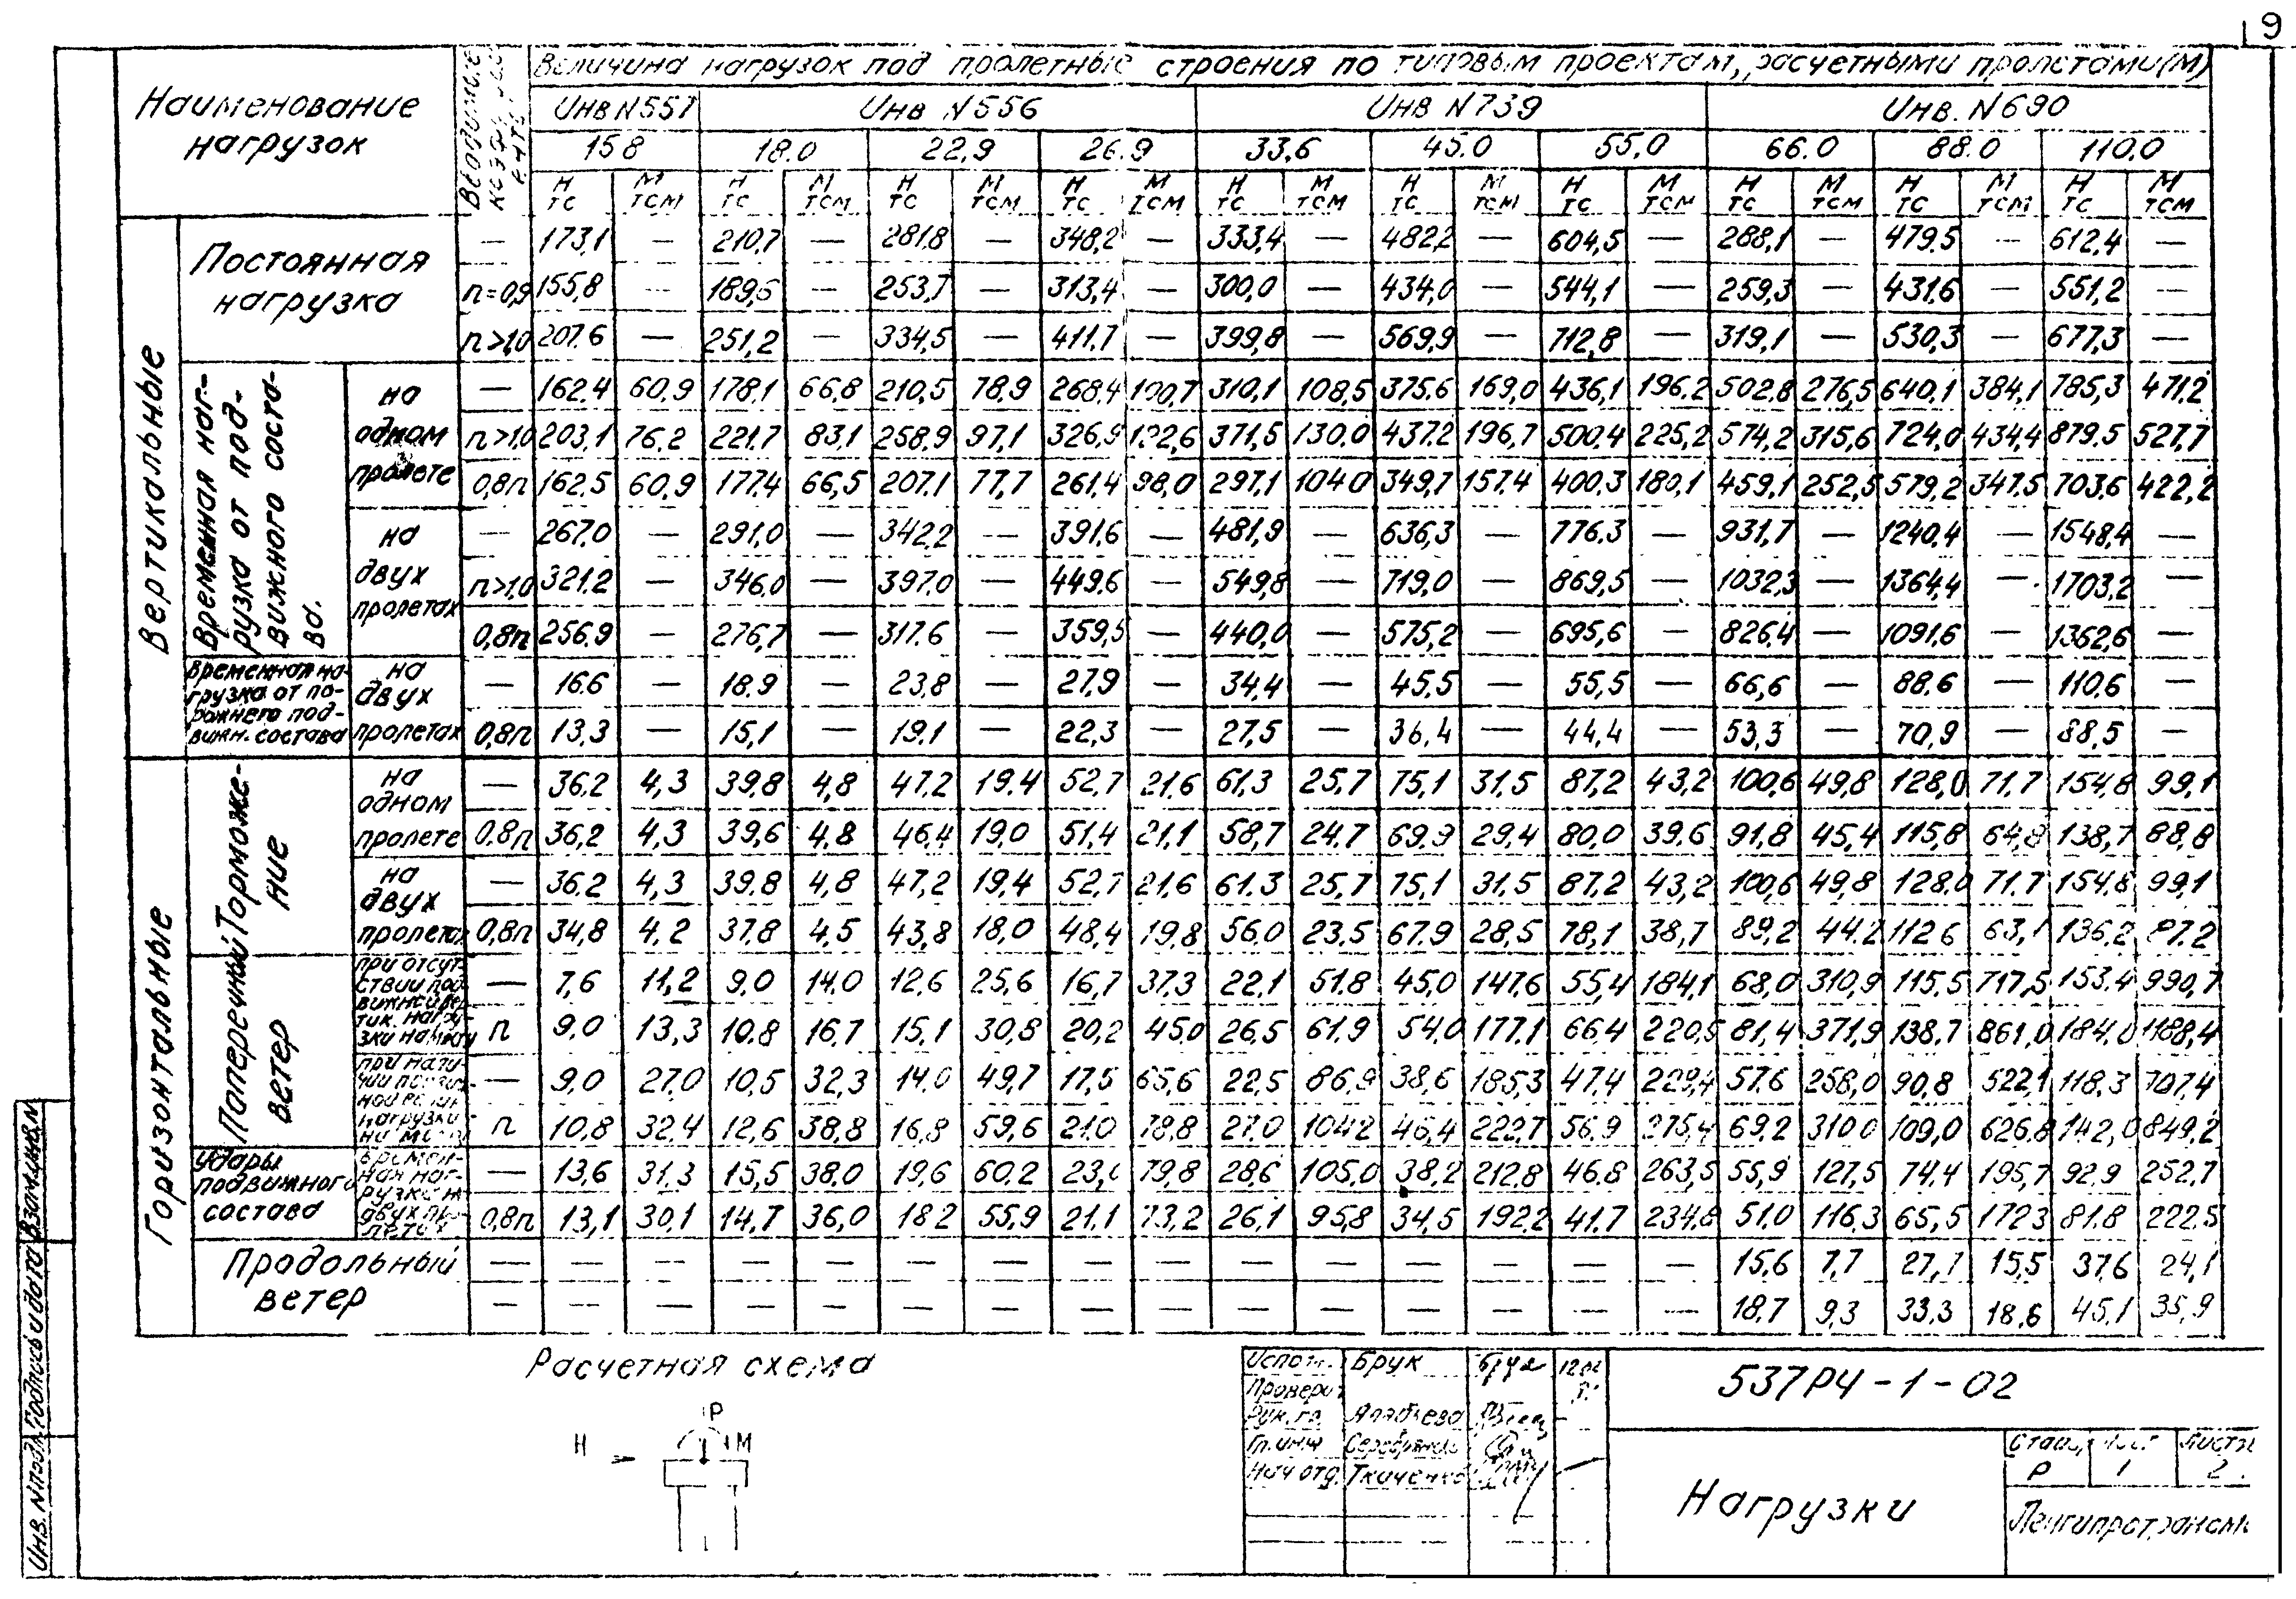 9
Наименование нагрузок
Величина нагрузок под пролетные строения по типовым проектам, расчетными пролетами (м)
Инв N 557 Инв N 556 Инв N 739 Инв. N 690
15.8 18.0 22,9 26.9 33,6 45.0 55,0 66.0 88.0 110,0
Н тс М тсм Н тс М тсм Н тс М тсм Н тс М тсм Н тс М тсм Н тс М тсм Н тс М тсм Н тс М тсм Н тс М тсм Н тс М тсм
Вертикальные
Постоянная нагрузка
— 173,1 — 210,7 — 281.8 — 348,2 — 333,4 — 482,2 — 604,5 — 288,1 — 479.5 — 612,4 —
n=0,9 155,8 — 189,6 — 253.7 — 313,4 — 300,0 — 434,0 — 544,1 — 259,3 — 431.6 — 551,2 —
n>1,0 207.6 — 251,2 — 334,5 — 411.7 — 399,8 — 569,9 — 712,8 — 319,1 — 530,3 — 677,3 —
Временная нагрузка от подвижного состава.
на одном пролете
— 162.4 60.9 178,1 66,8 210,5 78,9 268,4 100,7 310,1 108,5 375.6 169,0 436,1 196.2 502.8 276,5 640,1 384,1 785,3 471,2
n>1.0 203,1 76,2 221.7 83,1 258,9 97,1 326,9 122,6 371,5 130.0 437.2 196,7 500,4 225,2 574,2 315,6 724,0 434,4 879.5 527,7
0,8n 162,5 60,9 177.4 66,5 207.1 77,7 261.4 98,0 297,1 104.0 349,7 157.4 400,3 180,1 459,1 252,5 579,2 347.5 703,6 422,2
на двух пролетах
— 267.0 — 291,0 — 342.2 — 391.6 — 481,9 — 636,3 — 776.3 — 931,7 — 1240,4 — 1548,4 —
n>1,0 321.2 — 346.0 — 397.0 — 449.6 — 549,8 — 719,0 — 869,5 — 1032,3 — 1364,4 — 1703,2 —
0,8n 256.9 — 276,7 — 317.6 — 359,5 — 440,0 — 575,2 — 695,6 — 826,4 — 1091,6 — 1362,6 —
Временная нагрузка от порожнего подвижн. состава
на двух пролетах
— 16.6 — 18.9 — 23,8 — 27,9 — 34,4 — 45,5 — 55,5 — 66,6 — 88.6 — 110,6 —
0,8n 13,3 — 15,1 — 19.1 — 22,3 — 27,5 — 36,4 — 44,4 — 53,3 — 70,9 — 88,5 —
Горизонтальные
Торможение
на одном пролете
— 36.2 4,3 39,8 4,8 47.2 19.4 52,7 21.6 61,3 25,7 75,1 31,5 87,2 43,2 100,6 49,8 128,0 71,7 154,8 99,1
0.8n 36,2 4,3 39,6 4,8 46,4 19,0 51,4 21,1 58,7 24.7 69.9 29,4 80,0 39.6 91,8 45,4 115,8 64,8 138,7 88,8
на двух пролетах
— 36.2 4,3 39.8 4,8 47,2 19,4 52,7 21,6 61.3 25,7 75,1 31,5 87.2 43,2 100,6 49,8 128.0 71.7 154,8 99,1
0,8n 34,8 4,2 37.8 4,5 43,8 18,0 48,4 19,8 56.0 23,5 67.9 28,5 78,1 38,7 89,2 44.2 112.6 63,1 136.2 87.2
Поперечный ветер
при отсутствии подвижной вертик. нагрузки на мосту
— 7,6 11,2 9,0 14,0 12,6 25,6 16,7 37,3 22,1 51.8 45,0 147.6 55,4 184,1 68,0 310,9 115,5 717,5 153.4 990,7
n 9,0 13,3 10,8 16,7 15,1 30,8 20,2 45.0 26,5 61.9 54.0 177.1 66.4 220,5 81,4 371,9 138.7 861,0 184.0 1188,4
— 9,0 27.0 10,5 32,3 14.0 49,7 17,5 65,6 22,5 86,9 38,6 185,3 47,4 57.6 258,0 90,8 522,1 118,3 707,4
нагрузки
n 10,8 32.4 12,6 38,8 16,8 59,6 21.0 78,8 27.0 104.2 46,4 222,7 56,9 275,4 69,2 310.0 109,0 626.8 142,0 849,2
Удары подвижного состава
— 13,6 31,3 15,5 38,0 19,6 60.2 79,8 28,6 105,0 38,2 212.8 46.8 263,5 55,9 127,5 74,4 195,7 92,9 252,7
0,8n 13,1 30,1 14,7 36,0 18.2 55,9 21.1 73,2 26,1 95,8 34,5 192,2 41.7 234,8 51.0 116,3 65,5 172.3 81.8 222,5
Продольный ветер
— — — — — — — — — — — — — — — 15,6 7,7 27,7 15,5 37.6 24,1
— — — — — — — — — — — — — — — 18,7 9,3 33.3 18,6 45,1 35,9
Расчетная схема
Р
Н
М
Испол. Брук
Провери
Рук. гр.
Гл. инж
Нач отд. Ткаченко
537РЧ-1-02
Нагрузки
Р 1 2
Ленгипротрансм
Инв. N подл. Подпись и дата Взам. инв. N